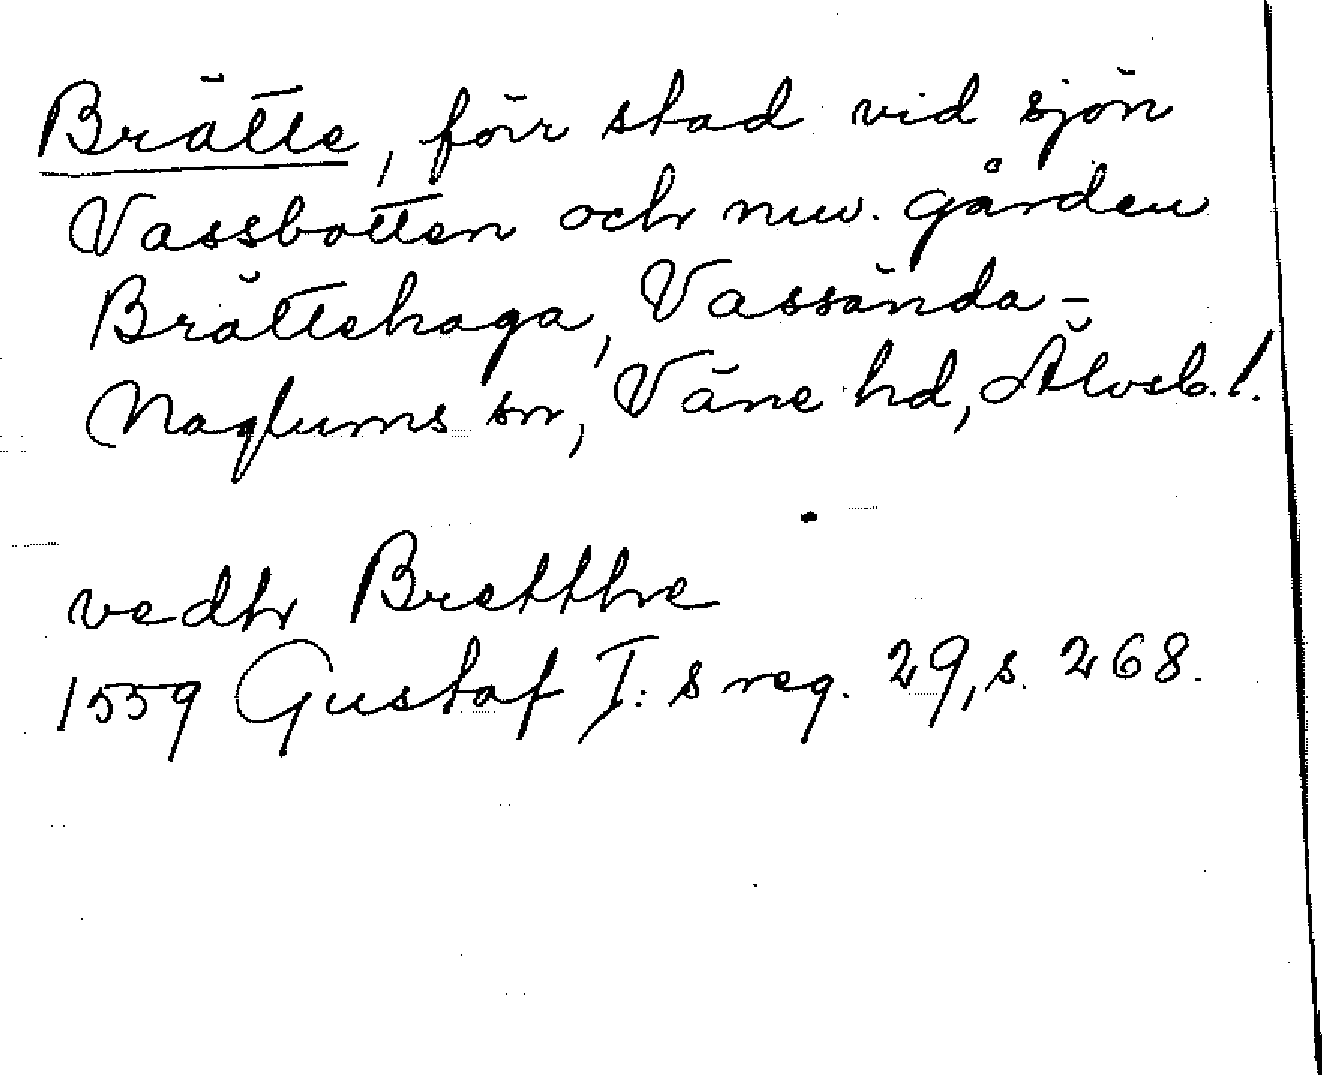 Brätte, förr stad vid sjön
Vassbotten och nuv. gården
Brättehaga, Vassända-
Naglums sn, Väne hd, Älvsb. l.
vedhr Bretthe
1559 Gustaf I:s reg. 29, s. 268.